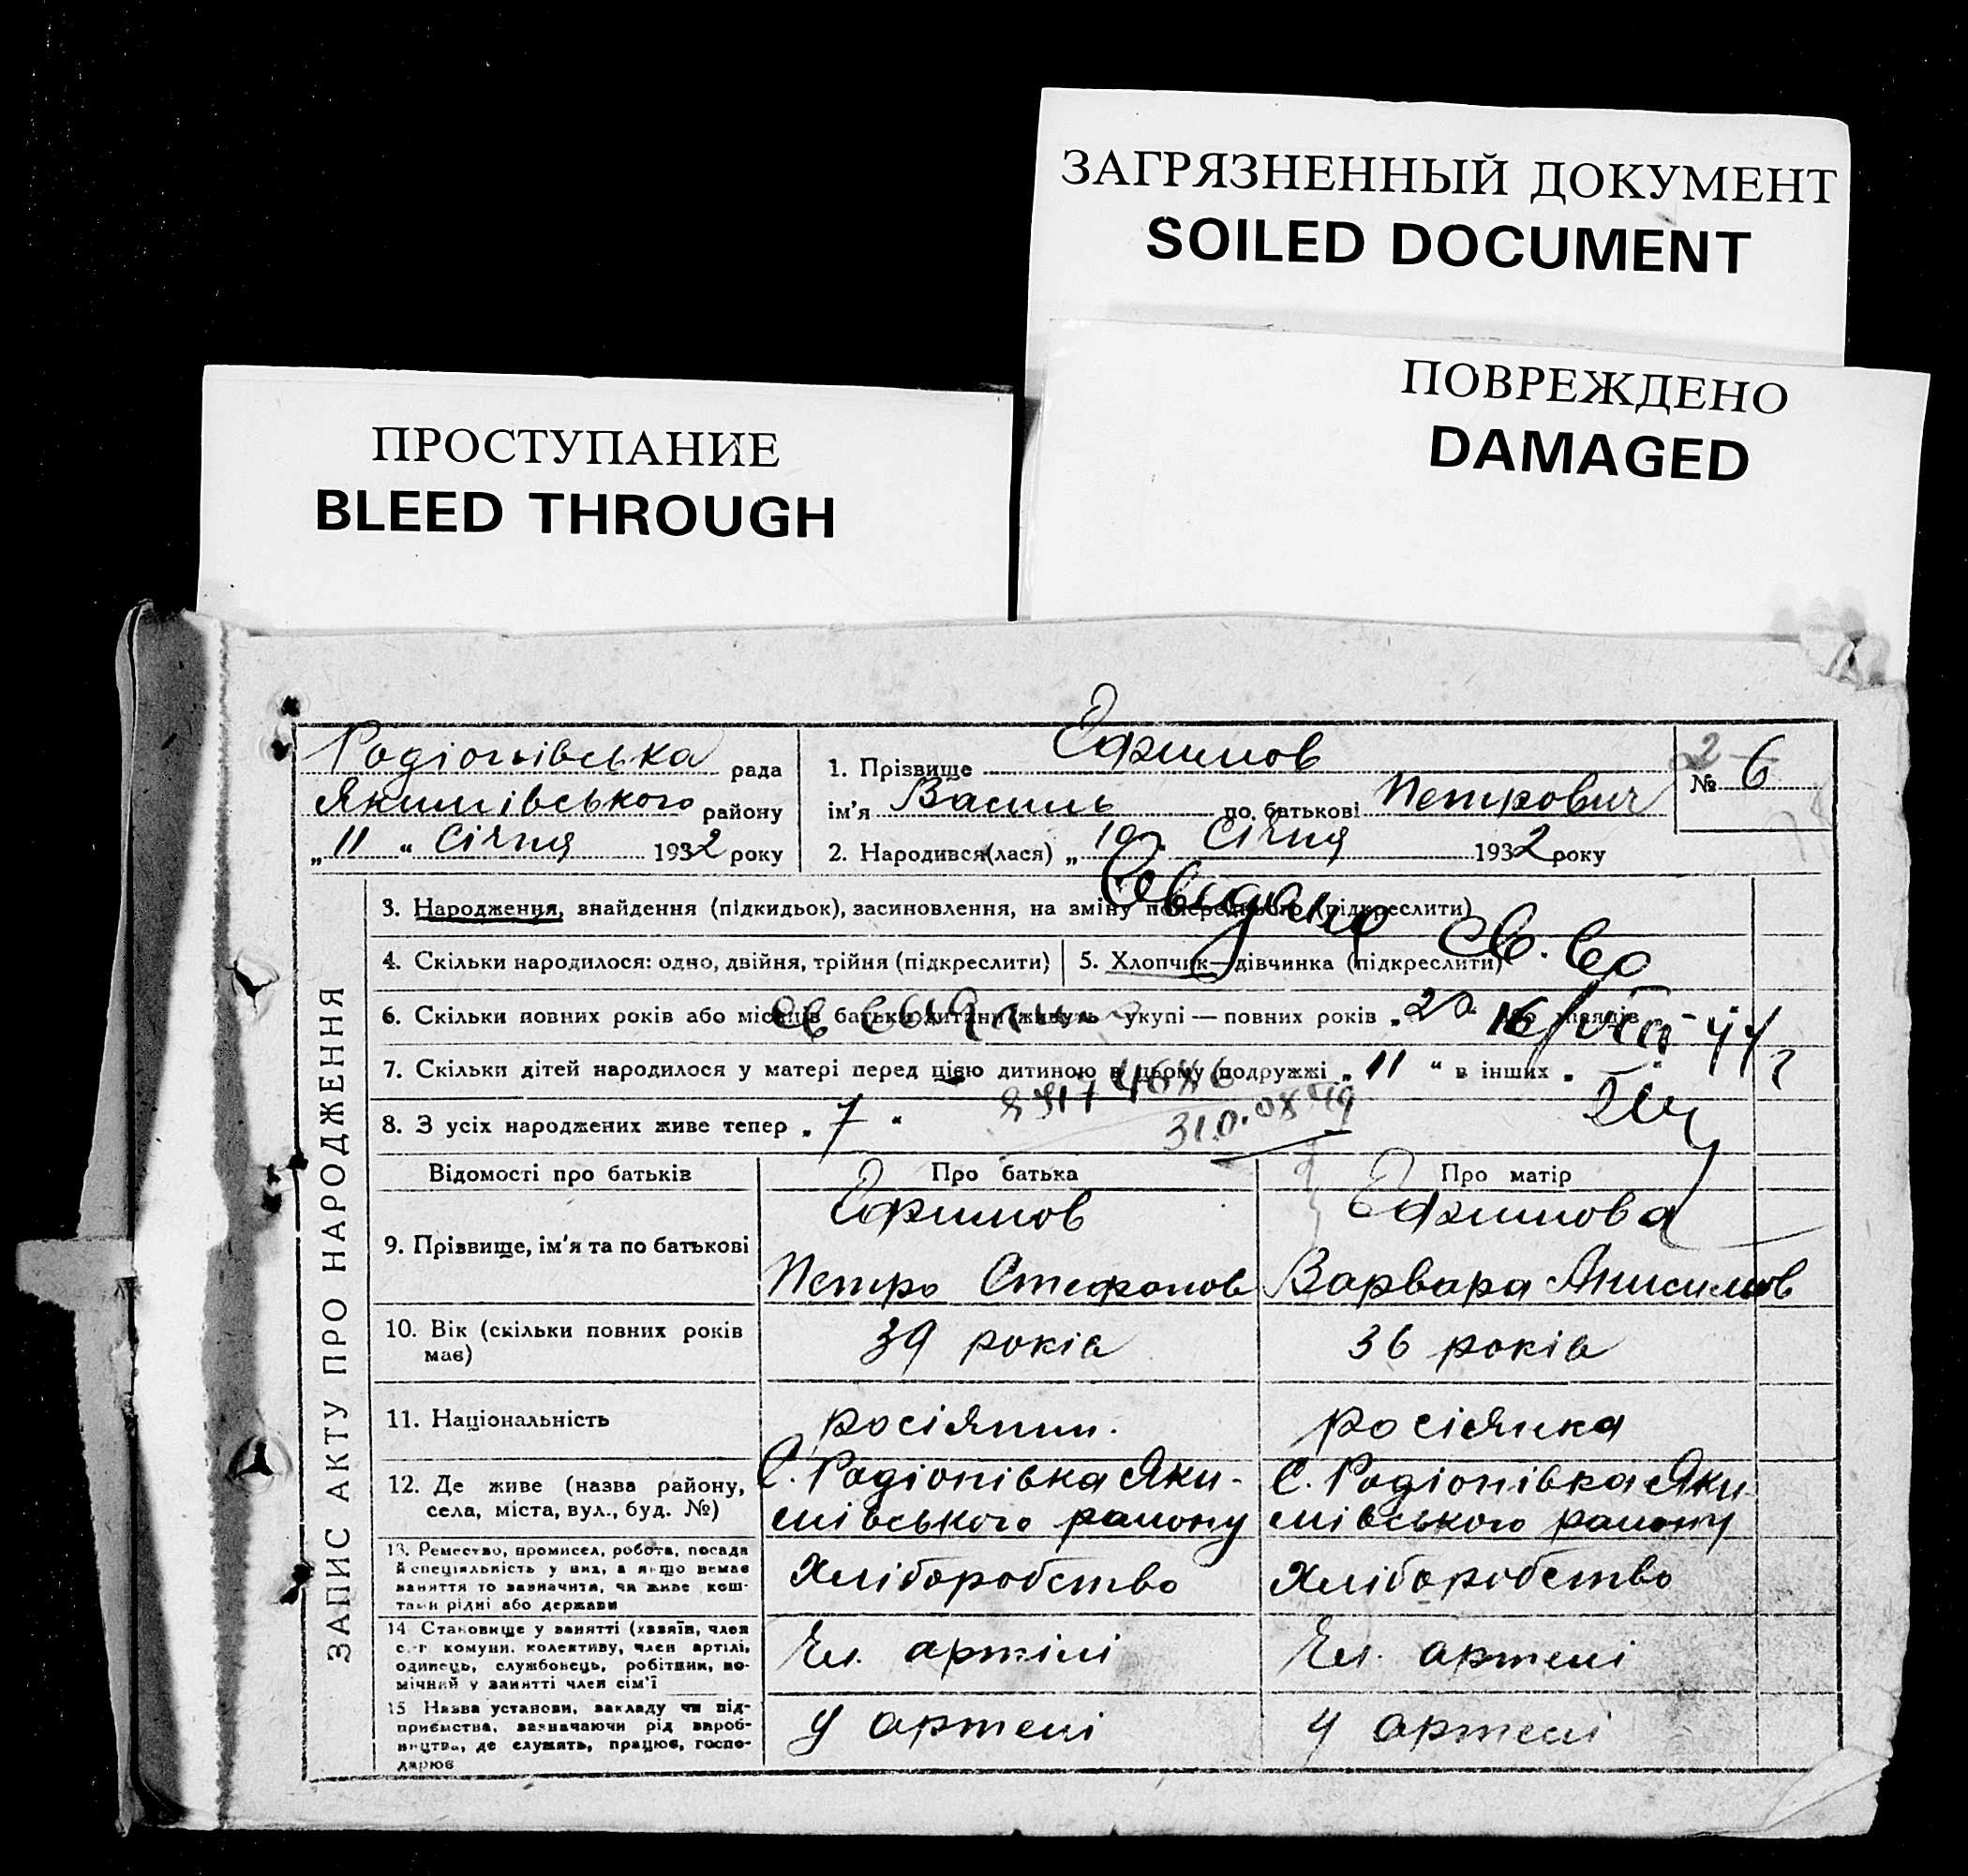 ЗАГРЯЗНЕННЫЙ ДОКУМЕНТ
SOILED DOCUMENT
ПОВРЕЖДЕНО
DAMAGED
ПРОСТУПАНИЕ
BLEED THROUGH
ЗАПИС АКТУ ПРО НАРОДЖЕННЯ
Родіонівська рада
Якимівського району
„11“ Січня 1932 року
1. Прізвище Ефимов
ім'я Василь по батькові Петрович
2. Народився(лася) „10“ Січня 1932 року
2
№ 6
3. Народження, знайдення (підкидьок), засиновлення, на зміну попереднього (підкреслити)
4. Скільки народилося: одно, двійня, трійня (підкреслити)
5. Хлопчик—дівчинка (підкреслити)
6. Скільки повних років або місяців батьки дитини живуть укупі — повних років „20
7. Скільки дітей народилося у матері перед цією дитиною в цьому подружжі „11“ в інших „
8. З усіх народжених живе тепер „7“
Видано св. во
16/VIII 44 г
Відомості про батьків Про батька Про матір
9. Прізвище, ім'я та по батькові
Ефимов
Петро Стефанов
Ефимова
Варвара Анисимов
10. Вік (скільки повних років має) 39 років 36 років
11. Національність росіянин. росіянка
12. Де живе (назва району,
села, міста, вул., буд. №)
С. Родіонівка Яки-
мівського району
С. Родіонівка Яки-
мівського району
13. Ремество, промисел, робота, посада
й спеціяльність у них, а якщо немає
заняття то зазначити, чи живе кош-
тами рідні або держави
Хліборобство Хліборобство
14 Становище у занятті (хазяїн, член
с.-г. комуни, колективу, член артілі,
одинець, службонець, робітник, по-
мічний у занятті член сім'ї
Чл. артілі Чл. артелі
15 Назва установи, закладу чи під-
приємства, зазначаючи рід вироб-
ництва, де служить, працює, госпо-
дарює
У артелі У артелі